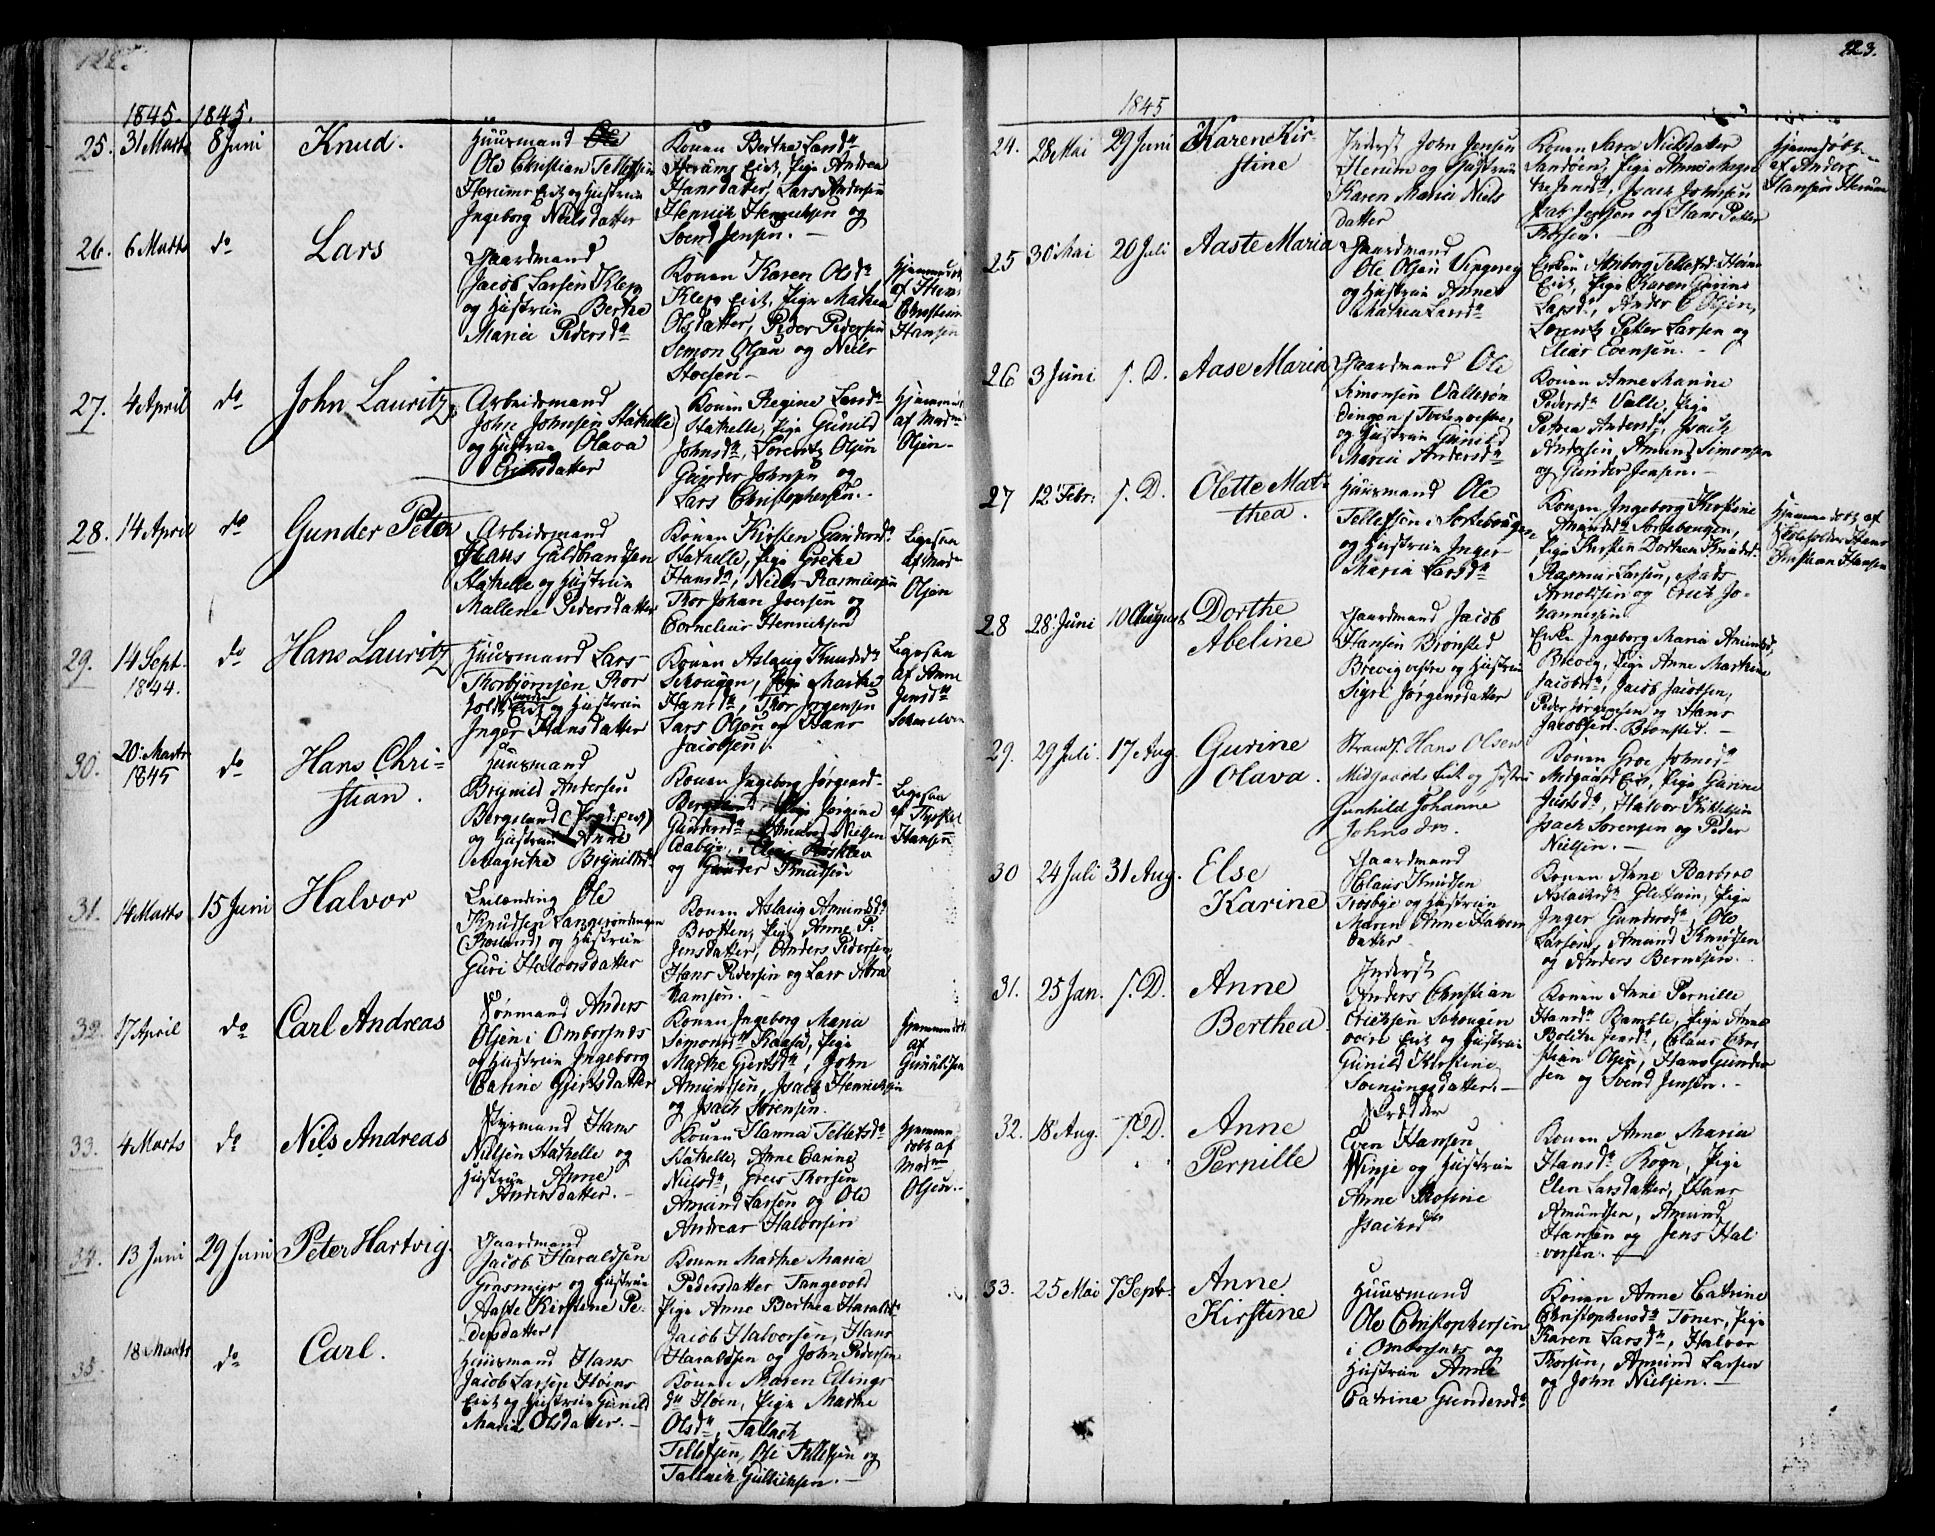 122.
1845. 1845.
25. 31 Marts 8 Juni Knud.
Huusmand
Ole Christian Tellefsen
Herums Eie og Hustrue
Ingeborg Nielsdatter
Konen Berthe Larsd.
Herums Eie, Pige Andrea
Hansdatter, Lars Andersen
Henrik Henriksen og
Svend Jensen. —
26. 6 Marts do Lars
Gaardmand
Jacob Larsen Klep
og Hustrue Berthe
Maria Pedersd.
Konen Karen Olsd.
Klep Eie, Pige Mathea
Olsdatter, Peder Pedersen
Simon Olsen og Niels
Hjemmedøbt
af
Christian
Hansen
27. 4 April do John Lauritz
Arbeidsmand
John Johnsen Stathelle
og Hustrue Olava
Erichsdatter
Konen Regine Larsd.
Stathelle, Pige Gunild
Johnsd., Lorentz Olsen
Gunder Johnsen og
Lars Christophersen. —
af Mad.
Olsen —
28. 14 April do Gunder Peter
Arbeidsmand
Hans Guldbrandsen
Stathelle og Hustrue
Mallene Pedersdatter
Konen Kirsten Gundersd.
Stathelle, Pige Grethe
Hansd., Niels Rasmussen
Thor Johan Iversen og
Cornelius Henriksen
Ligesaa
af Mad.
Olsen
29. 14 Sept. 1844. do Hans Lauritz
Huusmand Lars
Thorbjørnsen
Eie og Hustrue
Inger Hansdatter
Konen Aslaug Knudsd.
Schougen, Pige Marthe
Hansd., Thor Jørgensen
Lars Olsen og Hans
Jacobsen.
Ligesaa
af Anne
Jensd.
30. 20. Marts 1845 do Hans Christian.
Huusmand
Brynild Andersen
Bergeland
og Hustrue Anne
Magrethe Brynildsd.
Konen Ingeborg Jørgensd.
Pige Jørgine
Gundersd. Amund Nielsen
og Gunder Knudsen
Ligesaa
af
Hansen
31. 14 Marts 15 Juni Halvor
Leilænding Ole
Knudsen Langerøndingen
og Hustrue
Guri Halvorsdatter
Konen Aslaug Amundsd.
Brotten, Pige Anne P.
Jensdatter, Anders Pedersen,
Hans Pedersen og Lars Abra
hamsen.
32. 17 April do Carl Andreas
Anders
Olsen i Omborsnes
og Hustrue Ingeborg
Cathine Giertsdatter
Konen Ingeborg Maria
Simonsd. Raasa, Pige
Marthe Giertsd., John
Amundsen, Isach Henrichsen
og Isach Sørensen.
Hjemmedøbt
af
33. 4 Marts do Nils Andreas
Styrmand Hans
Nielsen Stathelle og
Hustrue Anne
Andersdatter. —
Konen Hanna Tellefsd.
Stathelle, Anne Carine
Nielsd., Thorsen
Amund Larsen og Ole
Andreas Halvorsen
Hjemme
døbt af
Mad.
Olsen. —
34. 13 Juni 29 Juni Peter Hartvig.
Gaardmand
Jacob Haraldsen
Grasmyr og Hustrue
Aaste Kirstine Pe-
dersdatter
Konen Marthe Maria
Pedersdatter Tangevold
Pige Anne Berthea Haralds
Jacob Halvorsen, Hans
Haraldsen og John Pedersen
35. 18 Marts do Carl.
Huusmand Hans
Jacob Larsen Høens
Eie og Hustrue Gunild
Maria Olsdatter. —
Konen Maren Ellings
d. Høen, Pige Marthe
Olsd., Tallach
Tellefsen, Ole Tellefsen og
Tallach Gullichsen. —
123.
1845
24. 28 Mai 29 Juni Karen Kir-
stine
Inderst John Jensen
Herum og Hustrue
Karen Maria Niels
datter
Konen Sara Nielsdatter
Sandøen, Pige Anne Magre
the Jensd., Isach Johnsen
Jensen og Hans Petter
Thorsen. —
Hjemmedøbt
af Anders
Hansen Herum
25 30 Mai 20 Juli Aaste Maria
Gaardmand
Ole Olsen
og Hustrue Anne
Mathea Larsd.
Enken Anborg Tellefsd. Høens
Eie, Pige Karen Carine
Larsd., Anders C. Olsen,
Lorentz Petter Larsen og
Evensen. —
26 3 Juni s. D. Aase Maria
Gaardmand Ole
Simonsen Vallesøn
dingen
og Hustrue Gunild
Maria Andersd.
Konen Anne Marine
Pedersd. Valle, Pige
Petrea Andersd., Isach
Andersen, Amund Simonsen
og Gunder Jensen. —
27 12 Febr. s. D. Olette Mat-
thea.
Huusmand Ole
Tellefsen i Sortebougen
og Hustrue Inger
Maria Larsd.
Konen Ingeborg Kirstine
Amundsd. Sortebougen,
Pige Kirsten Dorthea Knudsd.
Rasmus Larsen, Mads
Arnoldsen og Erich Jo-
hannesen.
Hjemmedøbt af
Skoleholder Hans
Christian Hansen
28 28 Juni 10 August Dorthe
Abeline
Gaardmand Jacob
Hansen Brønsted
Brevig vestre og Hustrue
Sigri Jørgensdatter
Enke Ingeborg Maria Amundsd.
Brevig, Pige Anne Marthine
Jacobsd., Jacob Jacobsen,
Peder Jørgensen og Hans
Jacobsen Brønsted. —
29. 29 Juli 17 Aug. Gurine
Olava.
Hans Olsen
Midgaards Eie og Hustrue
Gunhild Johanne
Johnsdr.
Konen Groe Johnsd.
Midgaard Eie, Pige Gurine
Justsd., Halvor Kittilsen
Isach Sørensen og Peder
Nielsen. —
30 24 Juli 31 Aug. Else
Karine
Gaardmand
Claus Knudsen
Trosbye og Hustrue
Maren Anne Halvors
datter
Konen Anne Barbroe
Aslachsd. Pige
Inger Gundersd., Ole
Larsen, Amund Knudsen
og Anders Berntsen.
31. 25 Jan. s. D. Anne
Berthea.
Inderst
Anders Christian
Erichsen Schougen
Eie og Hustrue
Gunild Kirstine
Svenungsdatter. —
Konen Anne Pernille
Hansd. Bamble, Pige Anne
Bolette Jensd., Claus Chri
stian Olsen, Hans Gunder
sen og Svend Jensen. —
32. 18 Aug. s. D. Anne
Pernille
Skrædder
Even Hansen
Winje og Hustrue
Anne Rosine
Isachsd.
Konen Anne Maria
Hansd. Rogn, Pige
Elen Larsdatter, Hans
Amundsen, Amund
Hansen og Jens Hal
vorsen. —
33. 25 Mai 7 Septr. Anne
Kirstine
Huusmand
Ole Christophersen
i Omborsnes og
Hustrue Anne
Catrine Gundersd.
Konen Anne Catrine
Christophersd. Toner, Pige
Karen Larsd., Halvor
Thorsen, Amund Larsen
og John Nielsen. —